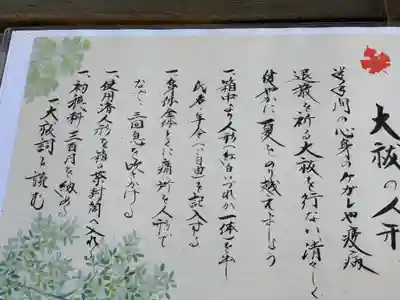 大祓の人形
半年間の心身のケガレや疫病
退散を祈る大祓を行ない清々しく
健やかに夏をのり越えましょう
一、箱中より人形(紅白いづれか一体)を出し
氏名・年令(ご自由)を記入する
一、身体全体とくに痛い所を人形で
なで、三回息を吹きかける
一、使用済人形を箱の奉封筒へ入れる
一、初穂料三百円を納める
一、大祓詞を読む